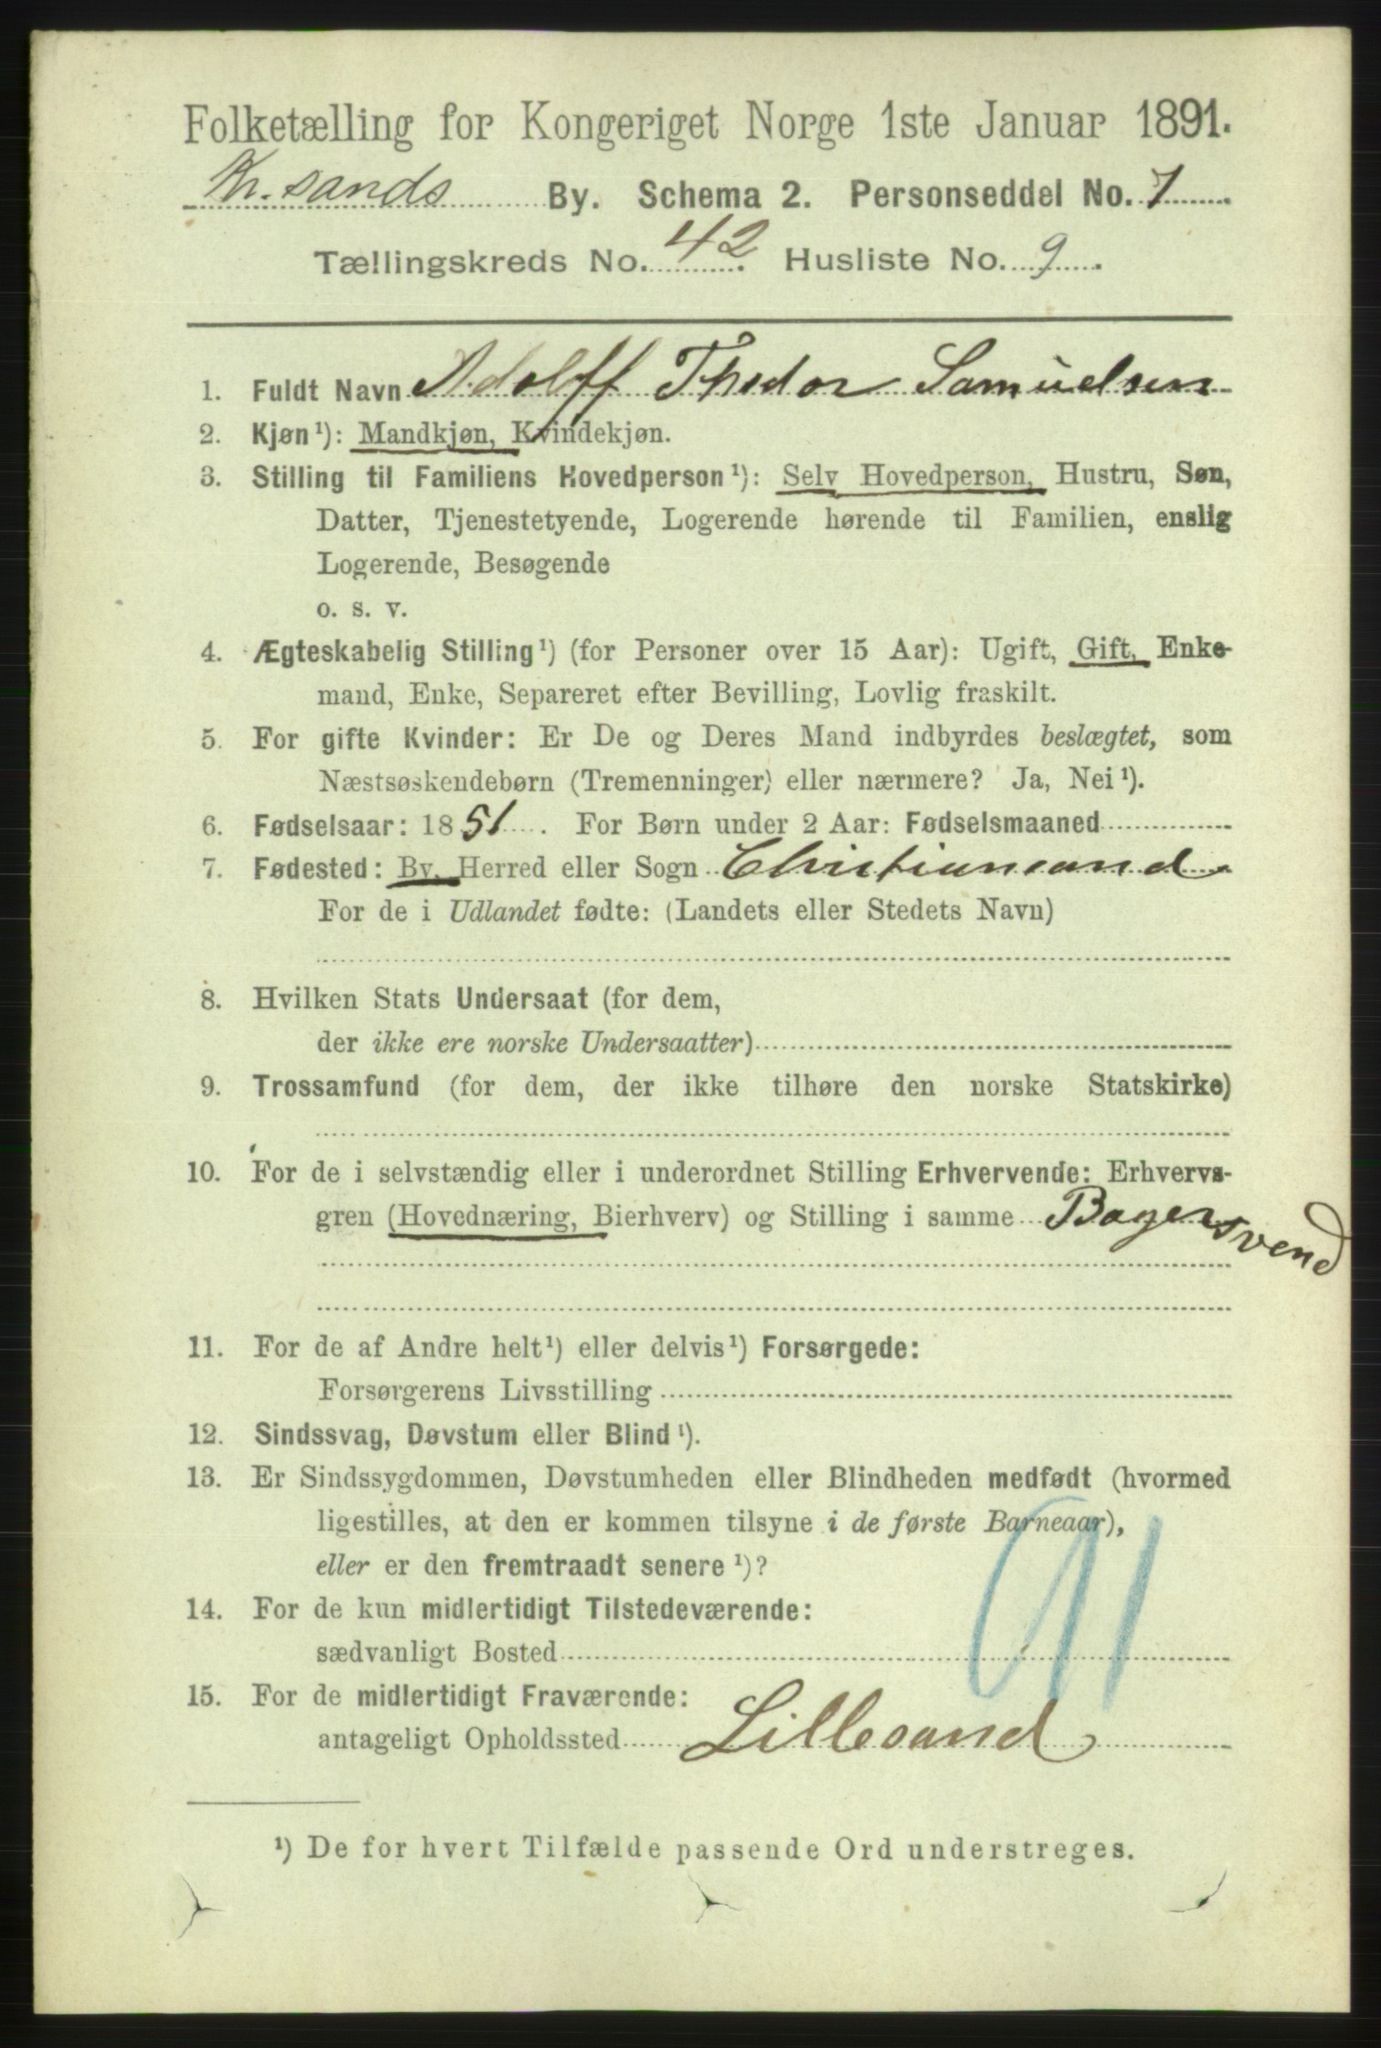 Folketælling for Kongeriget Norge 1ste Januar 1891.
Kr.sands By. Schema 2. Personseddel No. 1
Tællingskreds No. 42. Husliste No. 9.
1. Fuldt Navn Adolff Thedor Samuelsen
2. Kjøn¹): Mandkjøn, Kvindekjøn.
3. Stilling til Familiens Hovedperson¹): Selv Hovedperson, Hustru, Søn,
Datter, Tjenestetyende, Logerende hørende til Familien, enslig
Logerende, Besøgende
o. s. v.
4. Ægteskabelig Stilling¹) (for Personer over 15 Aar): Ugift, Gift, Enke-
mand, Enke, Separeret efter Bevilling, Lovlig fraskilt.
5. For gifte Kvinder: Er De og Deres Mand indbyrdes beslægtet, som
Næstsøskendebørn (Tremenninger) eller nærmere? Ja, Nei¹).
6. Fødselsaar: 1851. For Børn under 2 Aar: Fødselsmaaned
7. Fødested: By, Herred eller Sogn Christiansand
For de i Udlandet fødte: (Landets eller Stedets Navn)
8. Hvilken Stats Undersaat (for dem,
der ikke ere norske Undersaatter)
9. Trossamfund (for dem, der ikke tilhøre den norske Statskirke)
10. For de i selvstændig eller i underordnet Stilling Erhvervende: Erhvervs-
gren (Hovednæring, Bierhverv) og Stilling i samme Bagersvend
11. For de af Andre helt¹) eller delvis¹) Forsørgede:
Forsørgerens Livsstilling
12. Sindssvag, Døvstum eller Blind¹).
13. Er Sindssygdommen, Døvstumheden eller Blindheden medfødt (hvormed
ligestilles, at den er kommen tilsyne i de første Barneaar),
eller er den fremtraadt senere¹)?
14. For de kun midlertidigt Tilstedeværende:
sædvanligt Bosted
91
15. For de midlertidigt Fraværende:
antageligt Opholdssted Lillesand
¹) De for hvert Tilfælde passende Ord understreges.